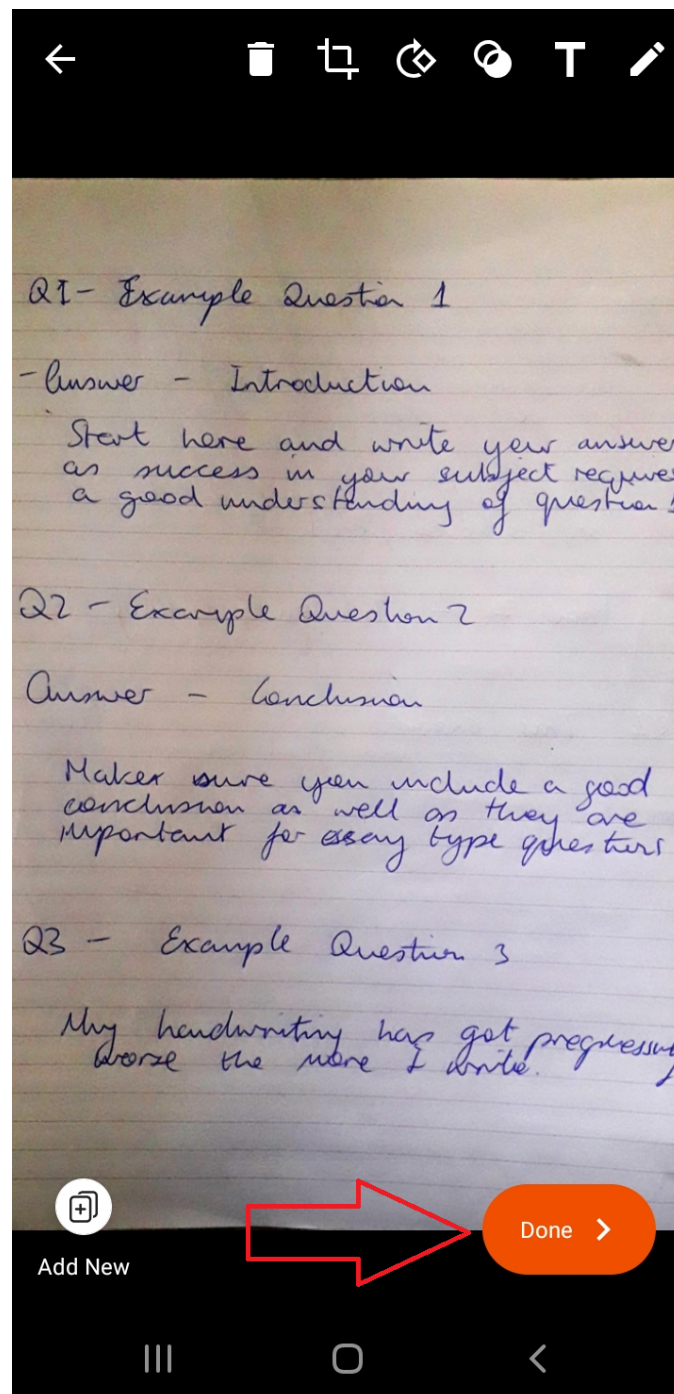 Q1 - Example Question 1
- Answer - Introduction
Start here and write your answer
as success in your subject requires
a good understanding of question 1
Q2 - Example Question 2
Answer - Conclusion
Maker sure you include a good
conclusion as well as they are
important for essay type questions
Q3 - Example Question 3
My handwriting has got
worse the more I write.
Add New
Done